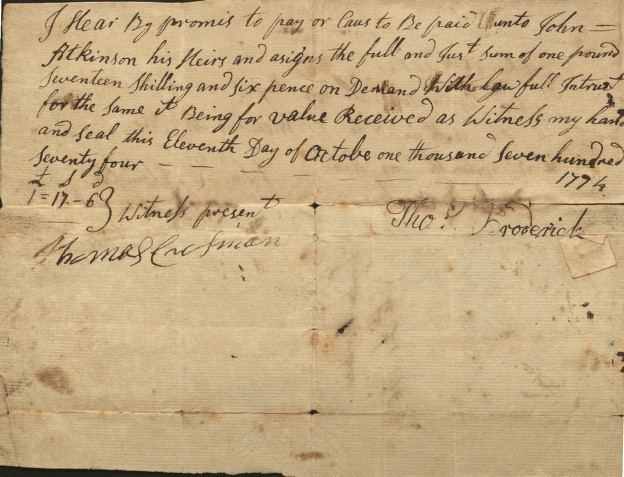 I Hear By promis to pay or Caus to Be paid unto John =
Atkinson his Heirs and asigns the full and Just sum of one pound
Seventeen Shilling and six pence on Demand With Lawfull Intrust
for the same it Being for value Received as Witness my hand
and seal this Eleventh Day of octobe one thousand Seven hundred
Seventy four — — — — — 1774
£ S d
1=17-6} Witness present
Tho.s Broderick
Thomas